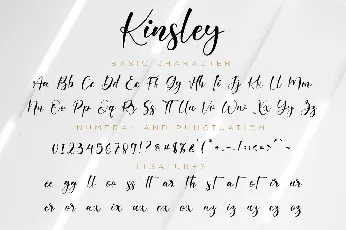 Kinsley
BASIC CHARACTER
Aa Bb Cc Dd Ee Ff Gg Hh Ii Jj Kk Ll Mm
Nn Oo Pp Qq Rr Ss Tt Uu Vv Ww Xx Yy Zz
NUMERAL AND PUNCTUATION
0123456789
LIGATURES
ee gg ll oo ss tt ar th st at ot ir ur
er or ax ix ux ox ay iz yz ez oz